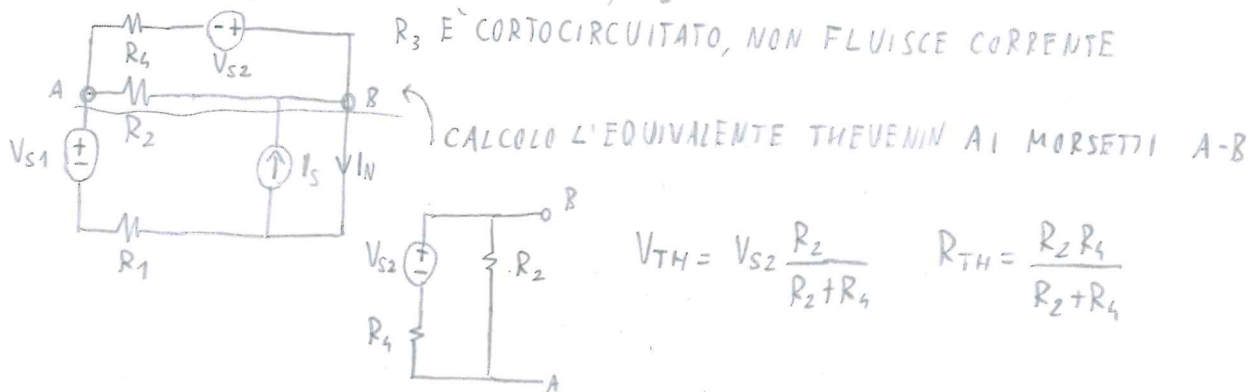 R3 E` CORTOCIRCUITATO, NON FLUISCE CORRENTE
R4
- +
VS2
A
B
R2
CALCOLO L'EQUIVALENTE THEVENIN AI MORSETTI A-B
VS1
+
-
IS
IN
R1
B
VS2
+
-
R2
R4
A
VTH = VS2 R2 / (R2+R4)
RTH = R2 R4 / (R2+R4)